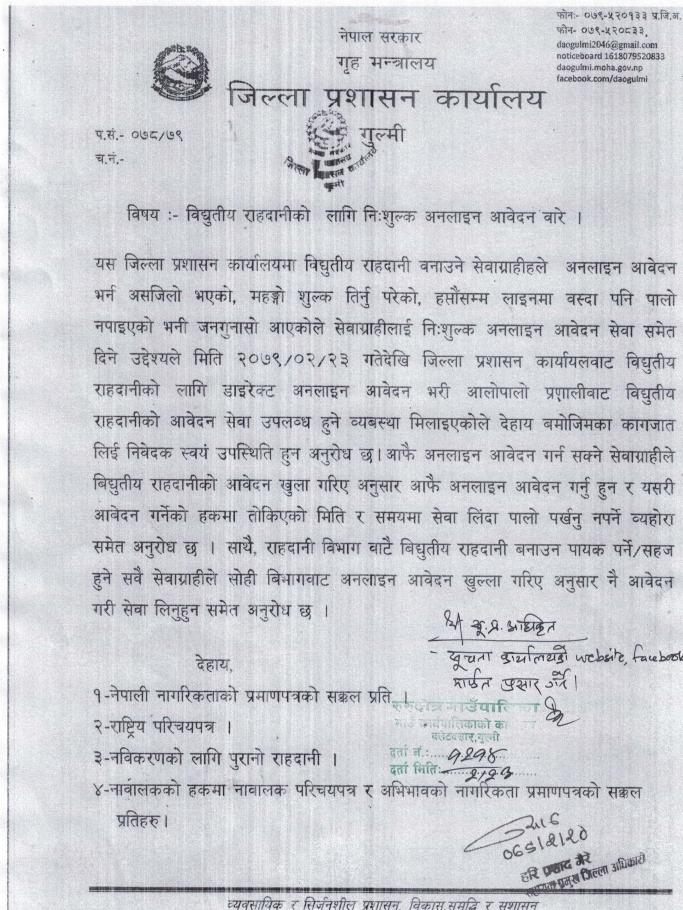 फोन: ०७९-५२०१३३ प्र.जि.अ.
फोन- ०७९-५२०८३३,
daogulmi2046@gmail.com
noticeboard 1618079520833
daogulmi.moha.gov.np
facebook.com/daogulmi
नेपाल सरकार
गृह मन्त्रालय
जिल्ला प्रशासन कार्यालय
गुल्मी
प.सं.- ०७८/७९
च.नं.-
विषय :- विद्युतीय राहदानीको लागि निःशुल्क अनलाइन आवेदन बारे ।
यस जिल्ला प्रशासन कार्यालयमा विद्युतीय राहदानी बनाउने सेवाग्राहीहले अनलाइन आवेदन
भर्न असजिलो भएको, महङ्गो शुल्क तिर्नु परेको, हप्तौसम्म लाइनमा वस्दा पनि पालो
नपाइएको भनी जनगुनासो आएकोले सेवाग्राहीलाई निःशुल्क अनलाइन आवेदन सेवा समेत
दिने उद्देश्यले मिति २०७९/०२/२३ गतेदेखि जिल्ला प्रशासन कार्यायलवाट विद्युतीय
राहदानीको लागि डाइरेक्ट अनलाइन आवेदन भरी आलोपालो प्रणालीवाट विद्युतीय
राहदानीको आवेदन सेवा उपलव्ध हुने व्यबस्था मिलाइएकोले देहाय बमोजिमका कागजात
लिई निवेदक स्वयं उपस्थिति हुन अनुरोध छ। आफै अनलाइन आवेदन गर्न सक्ने सेवाग्राहीले
बिद्युतीय राहदानीको आवेदन खुला गरिए अनुसार आफै अनलाइन आवेदन गर्नु हुन र यसरी
आवेदन गर्नेको हकमा तोकिएको मिति र समयमा सेवा लिंदा पालो पर्खनु नपर्ने व्यहोरा
समेत अनुरोध छ । साथै, राहदानी विभाग वाटै विद्युतीय राहदानी बनाउन पायक पर्ने/सहज
हुने सवै सेवाग्राहीले सोही बिभागवाट अनलाइन आवेदन खुल्ला गरिए अनुसार नै आवेदन
गरी सेवा लिनुहुन समेत अनुरोध छ ।
सू.प्र. अधिकृत
- सूचना कार्यालयको website, facebook
मार्फत प्रसार गर्ने।
देहाय,
१-नेपाली नागरिकताको प्रमाणपत्रको सक्कल प्रति ।
२-राष्ट्रिय परिचयपत्र ।
गाउँपालिका
३-नविकरणको लागि पुरानो राहदानी ।
दर्ता नं.:
दर्ता मिति:
४-नावालकको हकमा नावालक परिचयपत्र र अभिभावको नागरिकता प्रमाणपत्रको सक्कल
प्रतिहरु ।
हरि प्रसाद
प्रमुख जिल्ला अधिकारी
व्यवसायिक र सिर्जनशील प्रशासन, विकास,समृद्धि र सुशासन